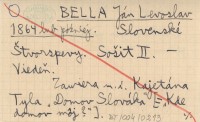 BELLA Ján Levoslav
1864 Slovenské
Štvorspevy. Sošit II. -
Viedeň.
Zawera n. i. Kajetána
Tyla, "Domov Slováka [„Kde
domov môj?"].